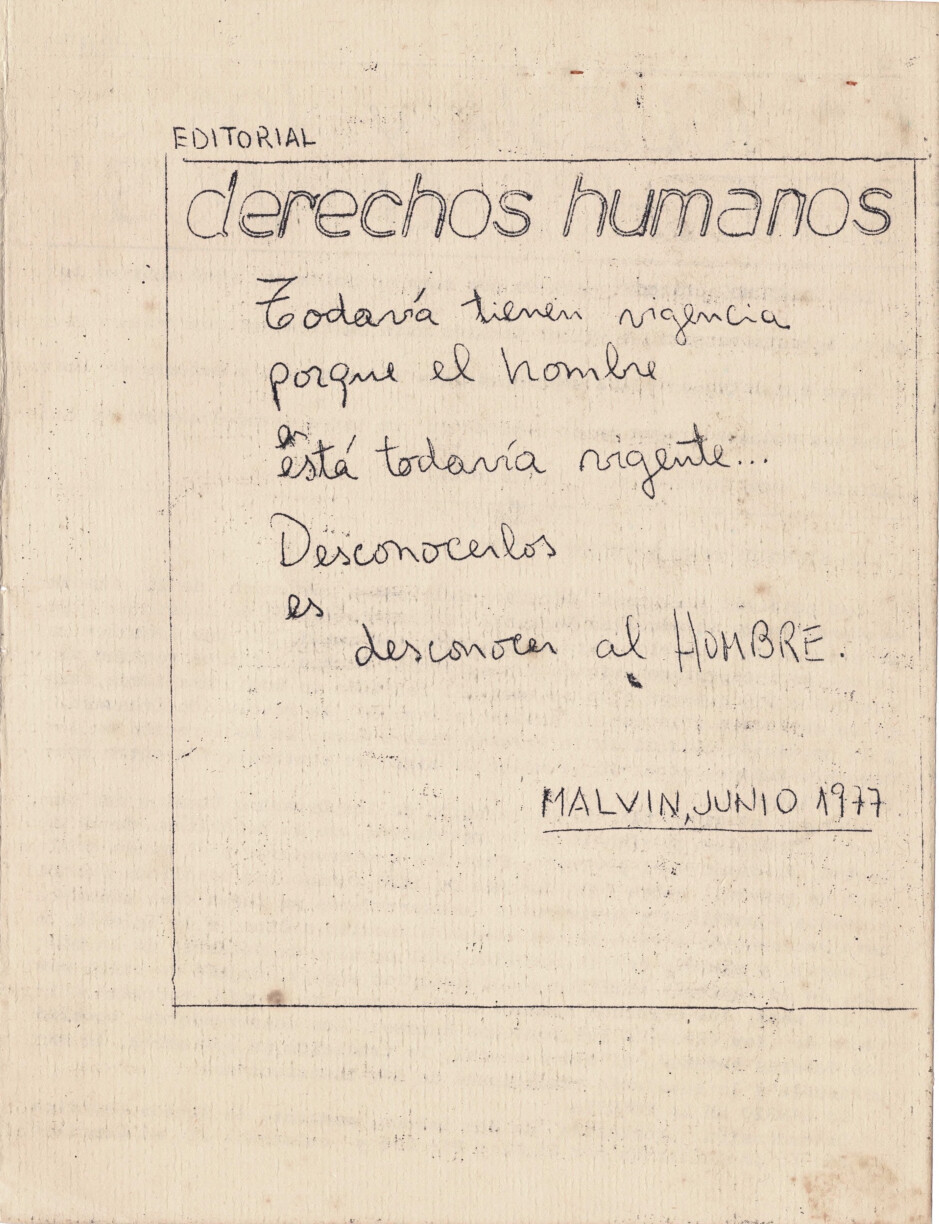 EDITORIAL
derechos humanos
Todavía tienen vigencia
porque el hombre
está todavía vigente...
Desconocerlos
es
desconocer al HOMBRE.
MALVIN, JUNIO 1977